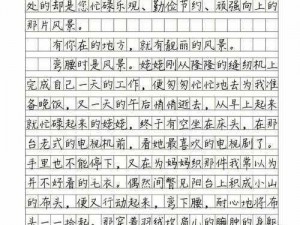 处的却是您忙碌乐观、勤俭节约、顽强向上的
那片风景。
有你在的地方，就有靓丽的风景。
弯腰时是风景。姥姥刚从隆隆的缝纫机上
完成自己一天的工作，便匆匆忙忙地去为我准
备晚饭，又一天的午后悄悄逝去，从早上起来
就忙碌起来的姥姥，终于有空坐在床头，在那
台老式的电视机前，看她最喜欢的电视剧了。
手里也不能停下，又在为妈妈织那件我常以为
并不好看的毛衣。偶然间瞥见阳台上积成小山
的布头，便又行动起来，弯下腰，耐心地将布
头一一拾起。那穿着羽绒